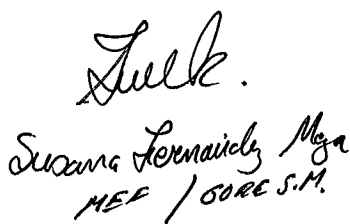 Susana Fernández
MEF / GORE S.M.